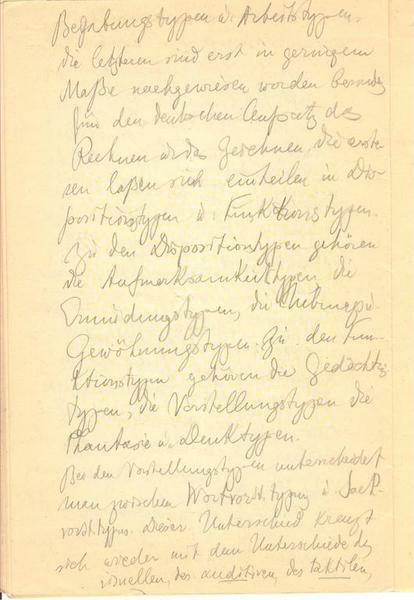 Begabungstypen u. Arbeitstypen.
die letzteren sind erst in geringem
Maße nachgewiesen worden besonders
für den deutschen Aufsatz das
Rechnen u. das Zeichnen, die erste-
ren laßen sich einteilen in Dis-
positionstypen u. Funktionstypen.
Zu den Dispositiontypen gehören
die Aufmerksamkeitstypen, die
Ermüdungstypen, die Übungs u.
Gewöhnungstypen. Zu den Fun-
ktionstypen gehören die Gedächtnis
typen, die Vorstellungstypen die
Phantasie u. Denktypen.
Bei den Vorstellungstypen unterscheidet
man zwischen Wortvorst. typen u. Sach-
vorst. typen. Dieser Unterschied kreuzt
sich wieder mit dem Unterschiede des
visuellen, des auditiven, des taktilen,